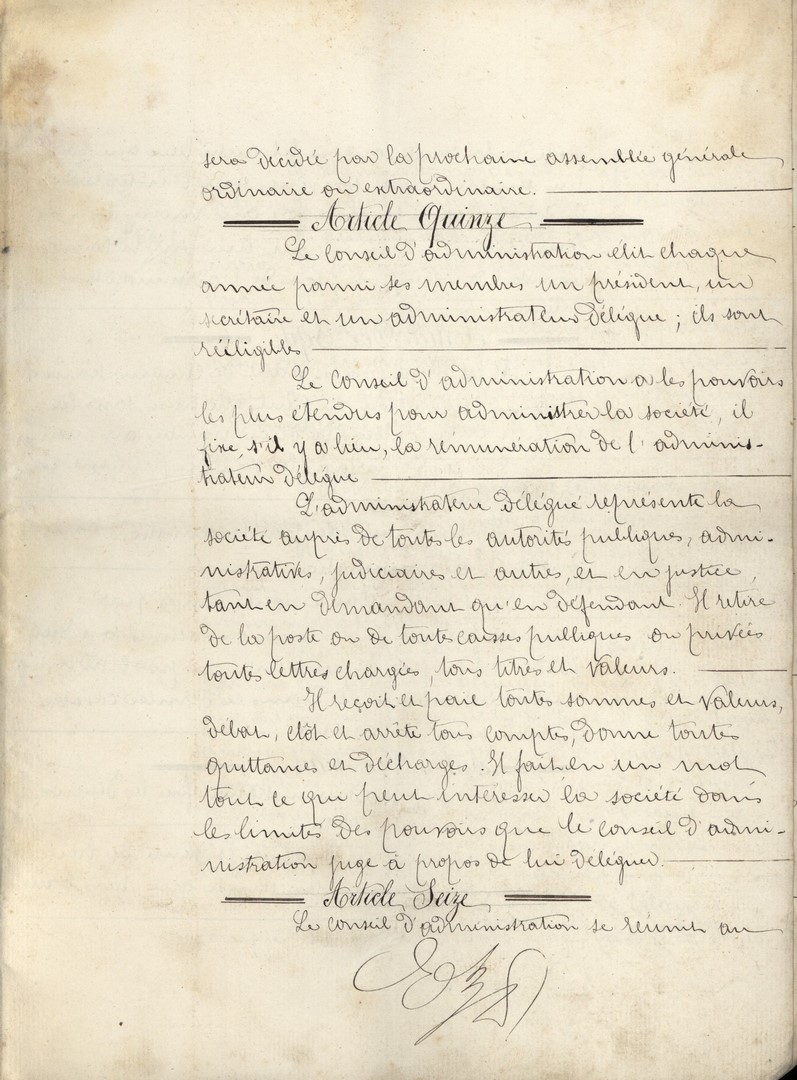 sera décidée par la prochaine assemblée générale
ordinaire ou extraordinaire.
Article Quinze
Le Conseil d'administration élit chaque
année parmi ses membres un président, un
secrétaire et un administrateur délégué ; ils sont
rééligibles
Le Conseil d'administration a les pouvoirs
les plus étendus pour administrer la société, il
fixe, s'il y a lieu, la rémunération de l'adminis-
trateur délégué
L'administrateur délégué représente la
société auprès de toutes les autorités publiques, admi-
nistratives, judiciaires et autres, et en justice,
tant en demandant qu'en défendant. Il retire
de la poste ou de toutes caisses publiques ou privées
toutes lettres chargées, tous titres et valeurs.
Il reçoit et paie toutes sommes et valeurs,
débat, clôt et arrête tous comptes, donne toutes
quittances et décharges. Il fait en un mot
tout ce qui peut intéresser la société dans
les limites des pouvoirs que le Conseil d'admi-
nistration juge à propos de lui déléguer.
Article Seize
Le Conseil d'administration se réunit au